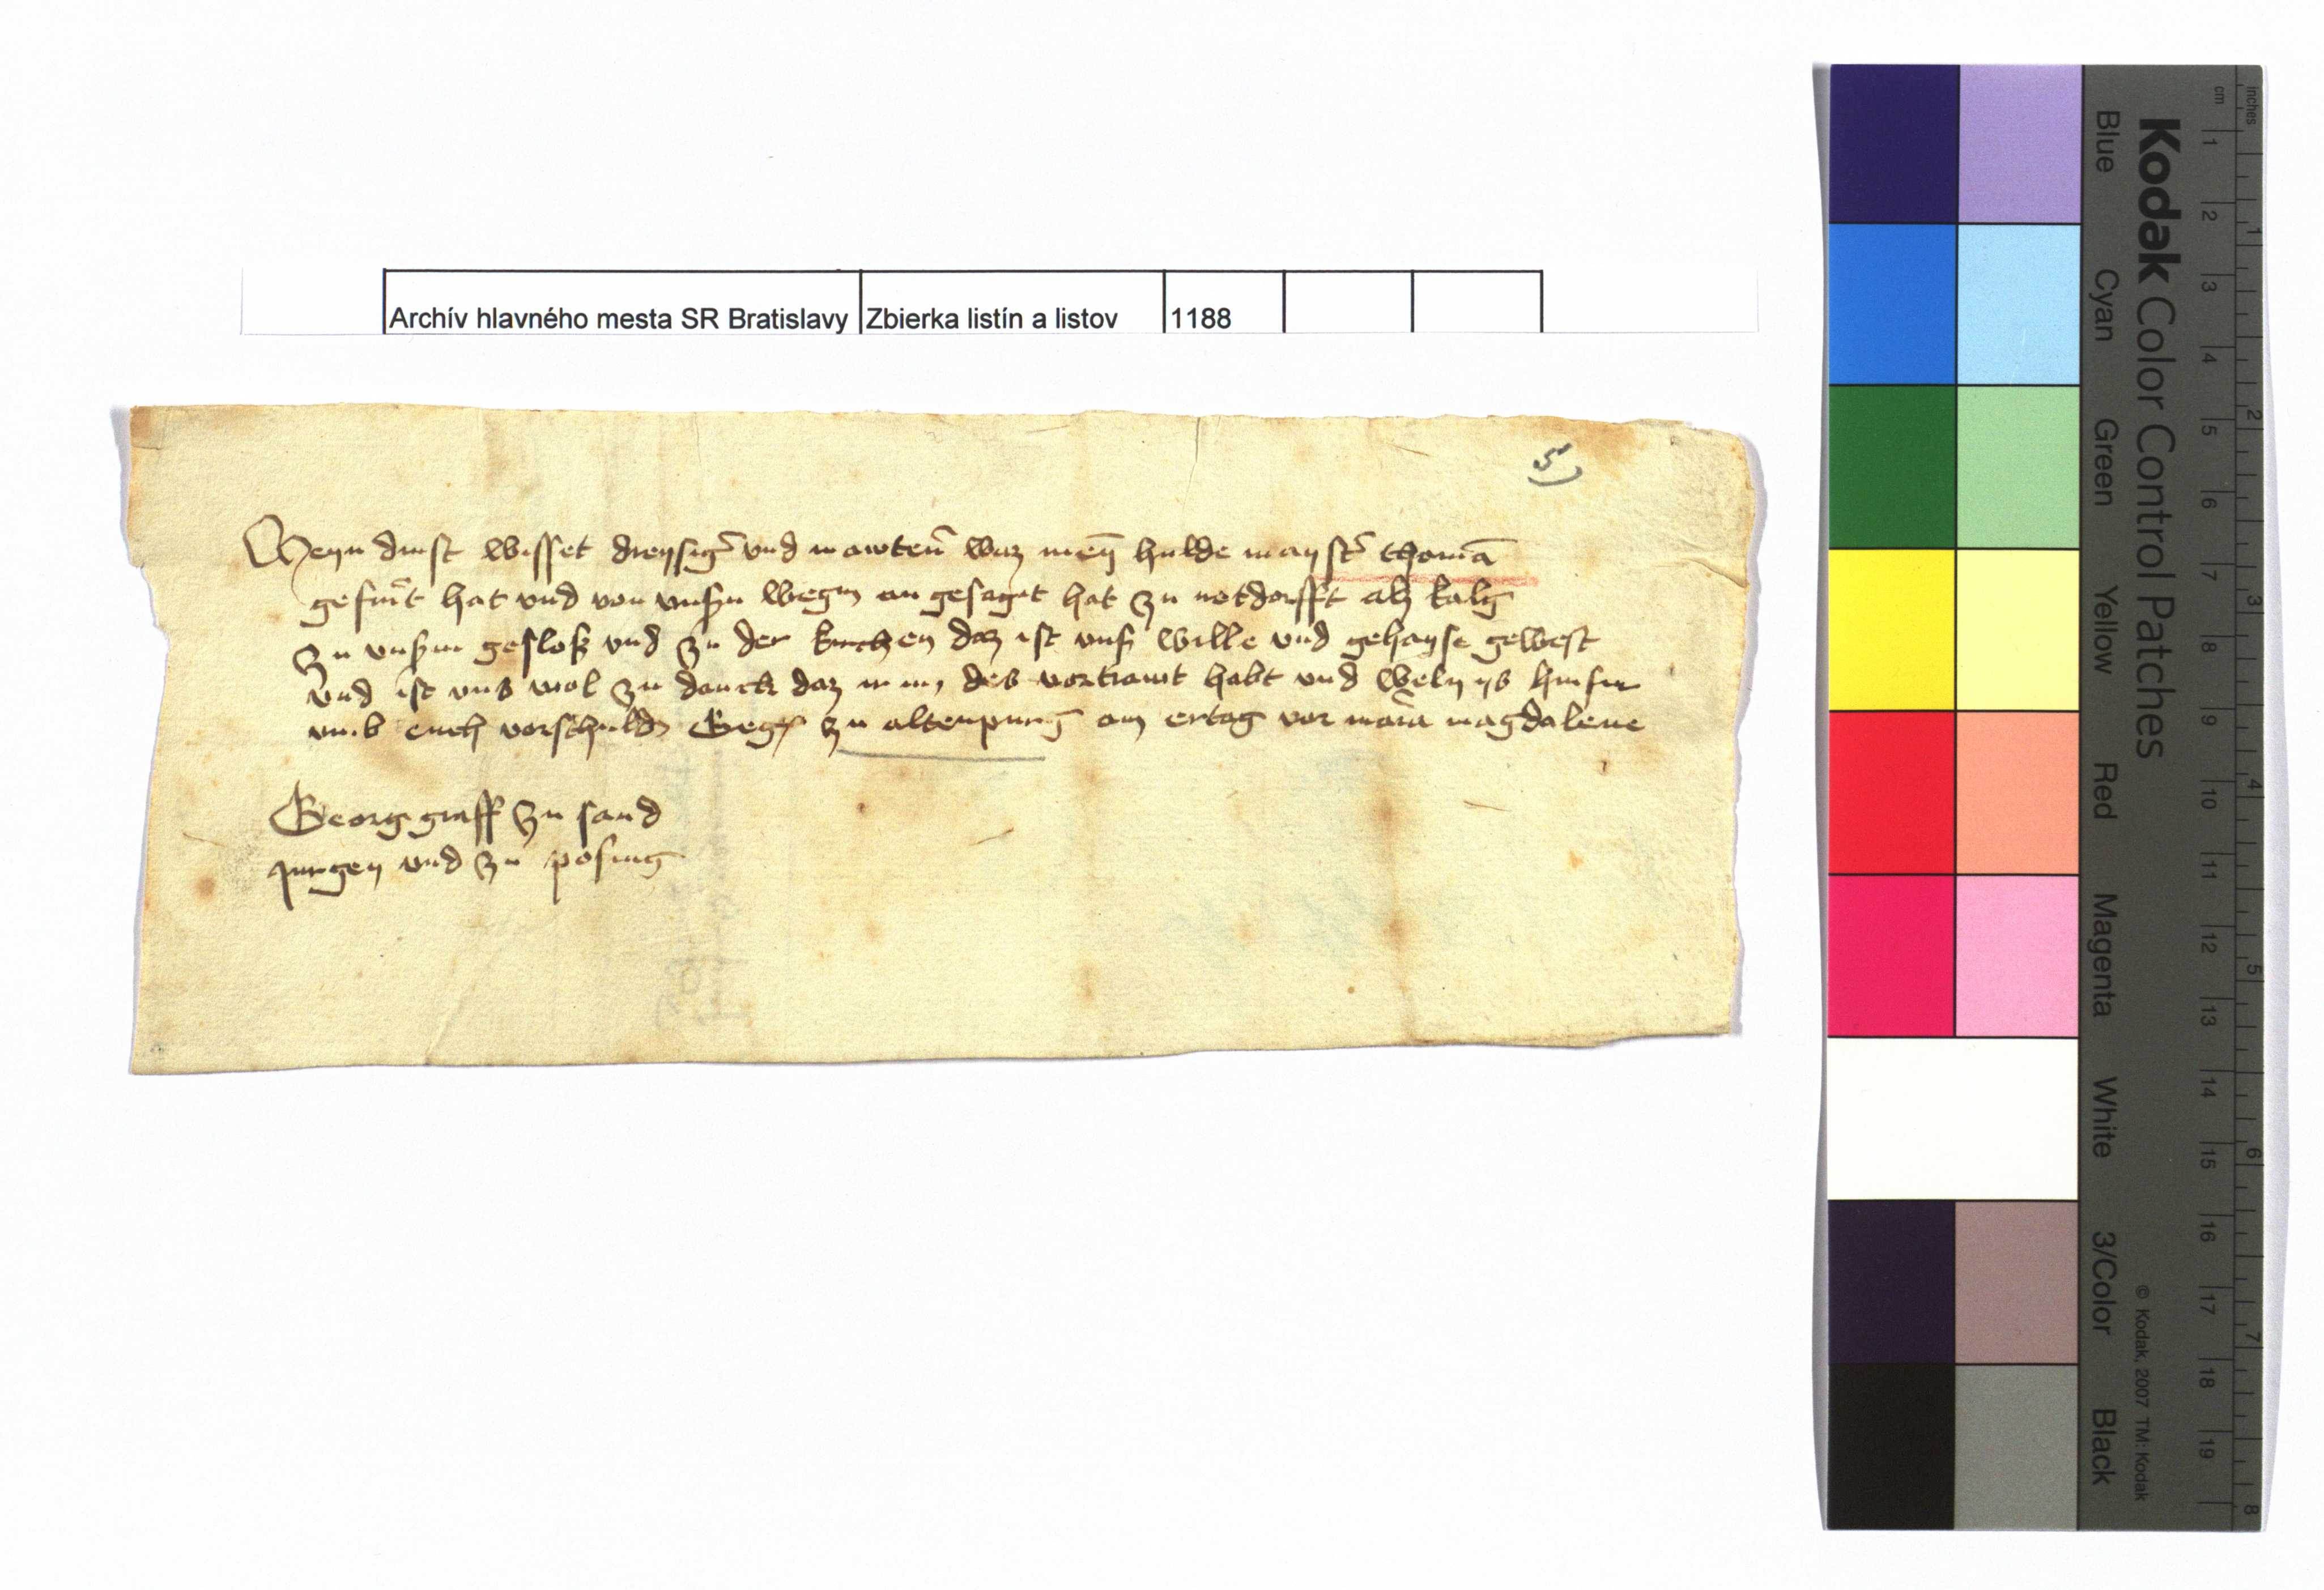 Archív hlavného mesta SR Bratislavy Zbierka listín a listov 1188
5
Meyn dinst wisset dreysig̃ vnd mawten̄ waz meȳ hulde mayst̃ thomā
gefurt hat vnd von vnsern wegen an gesaget hat zu notdorfft alz kalg
zu vnserm gesloß vnd zu der kirchen daz ist vnser wille vnd gehayse gewest
vnd ist vns wol zu danck daz ir im des vortrawt habt vnd weln ys hinfur
vmb euch vorschulden Gegeben zu altenpurg am ertag vor maria magdalene
Georg graff zu sand
jurgen vnd zu posing
Kodak Color Control Patches
Blue Cyan Green Yellow Red Magenta White 3/Color Black
© Kodak, 2007 TM: Kodak
cm 1 2 3 4 5 6 7 8 9 10 11 12 13 14 15 16 17 18 19
inches 1 2 3 4 5 6 7 8